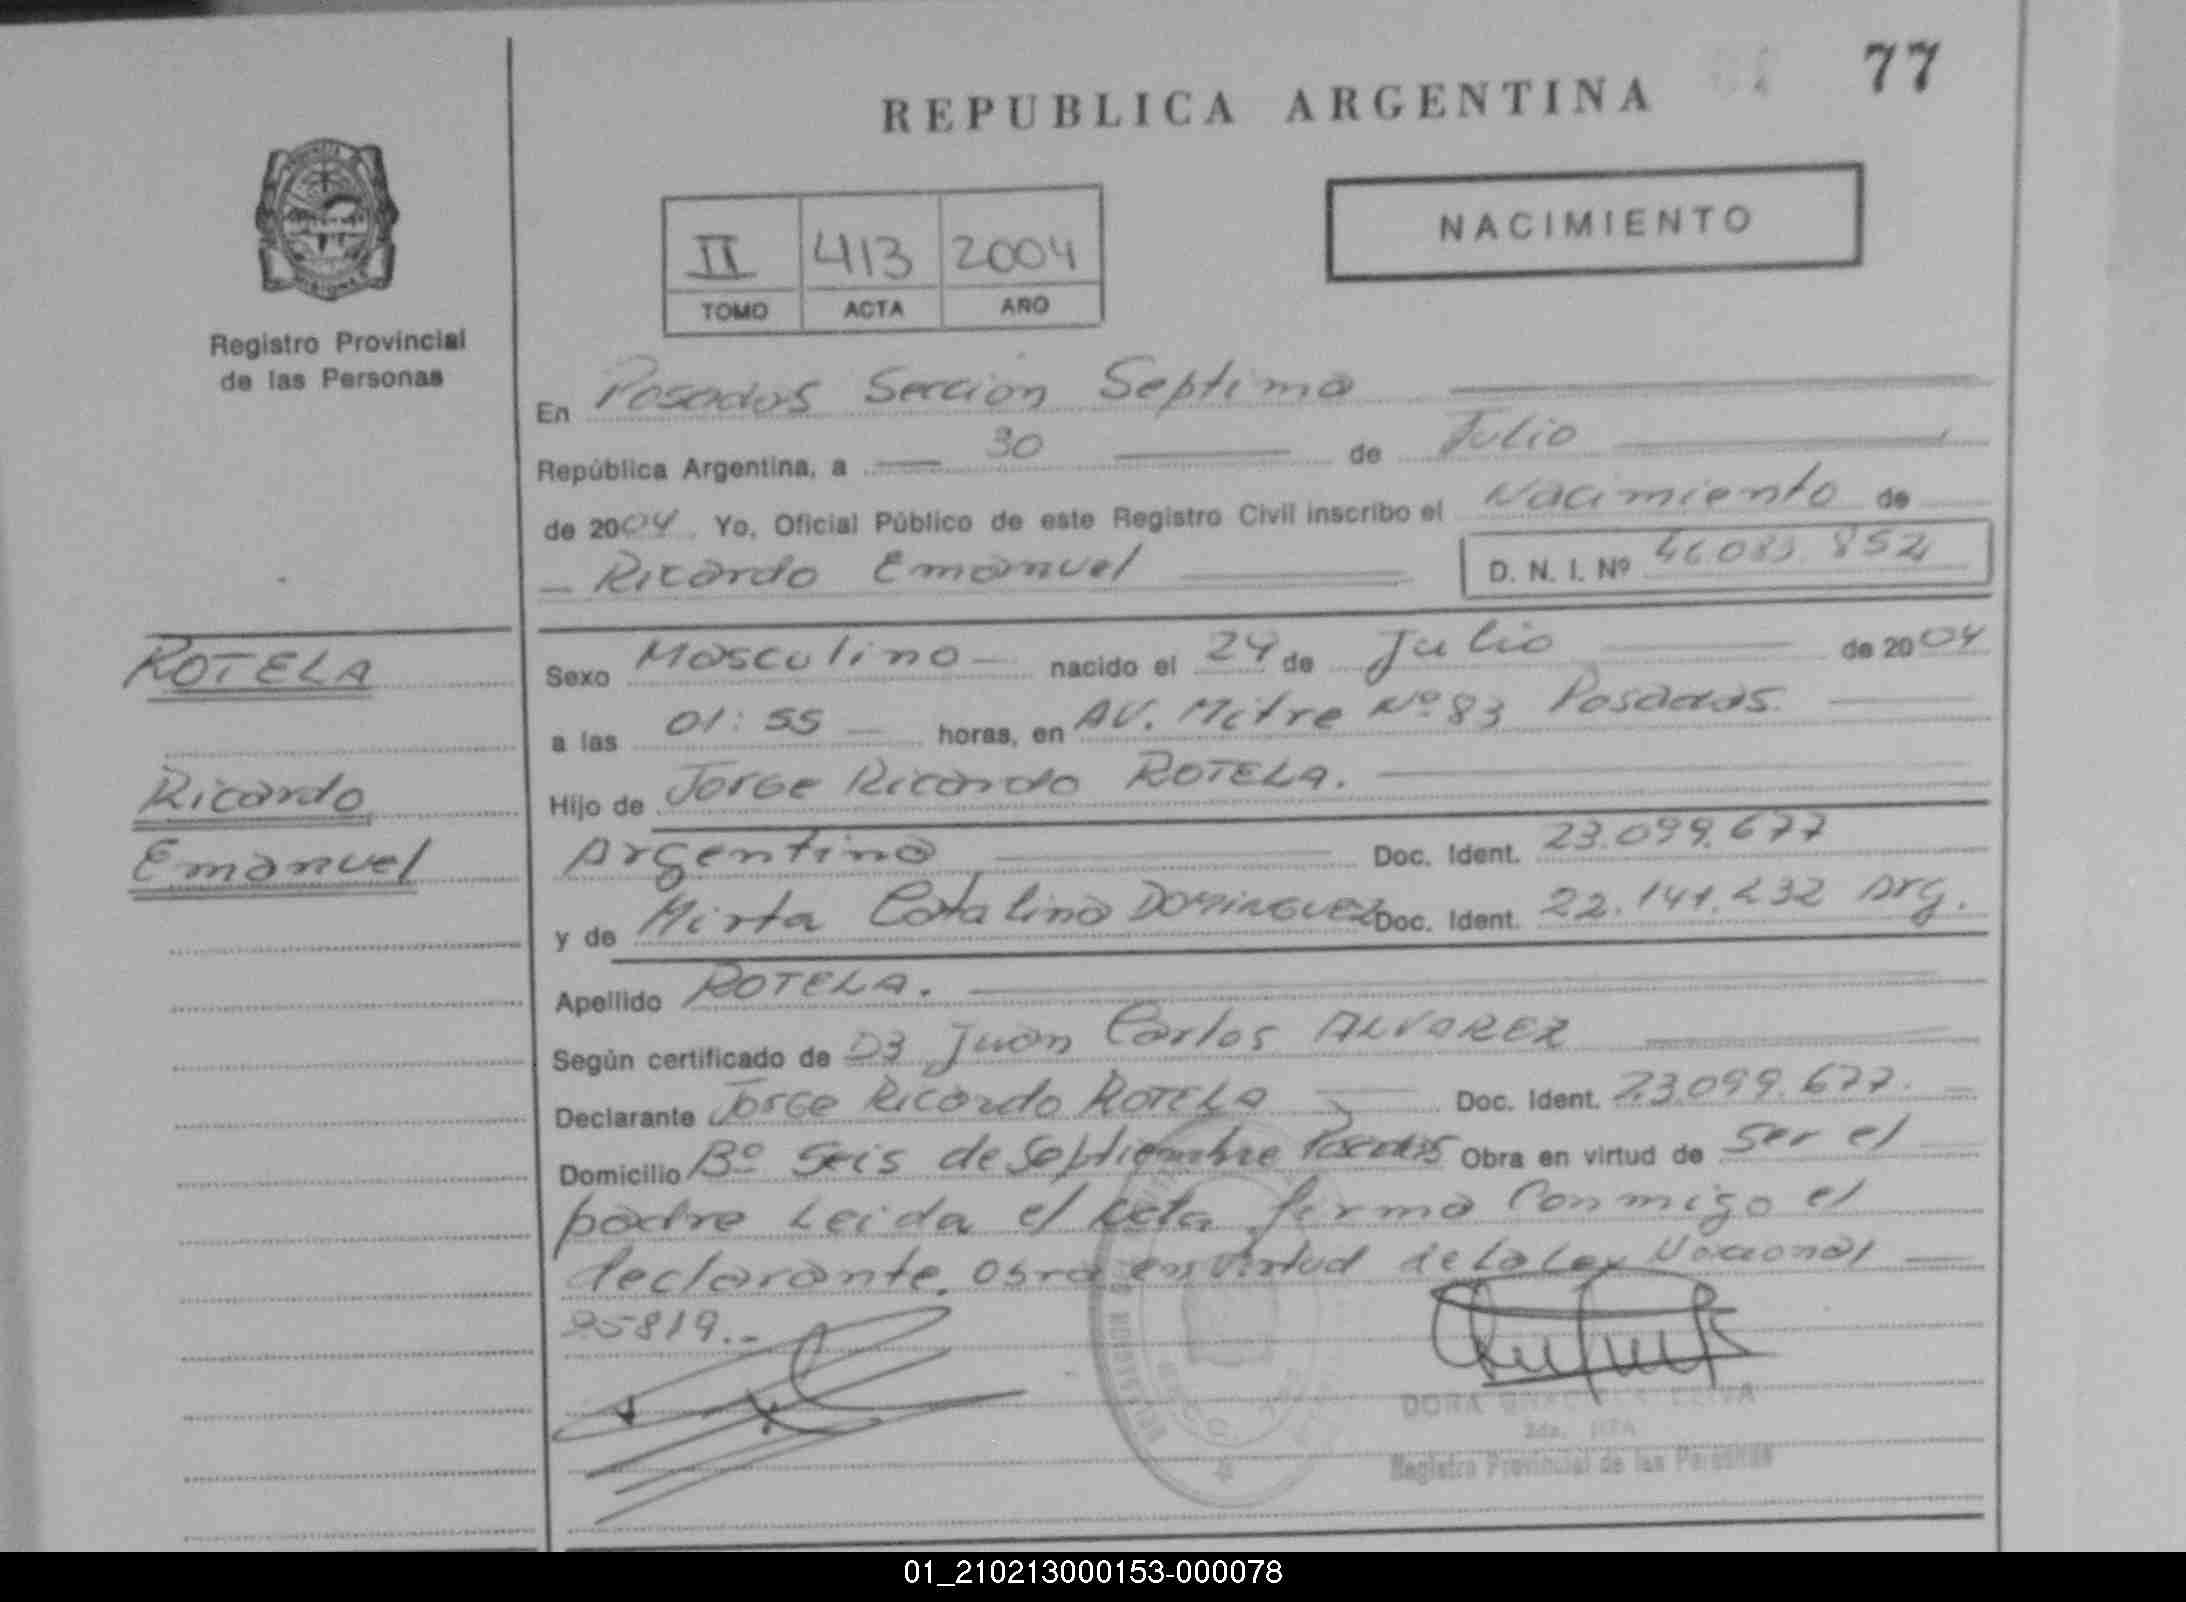 77
REPUBLICA ARGENTINA
NACIMIENTO
II 413 2004
TOMO ACTA AÑO
Registro Provincial
de las Personas
En Posadas Sección Septima
República Argentina, a 30 de Julio
de 2004. Yo, Oficial Público de este Registro Civil inscribo el Nacimiento de
Ricardo Emanuel D. N. I. Nº
ROTELA
Ricardo
Emanuel
Sexo Masculino nacido el 24 de Julio de 2004
a las 01:55 horas, en AV. Mitre Nº 83 Posadas.
Hijo de Jorge Ricardo ROTELA.
Argentino Doc. Ident. 23.099.677
y de Mirta Catalina DOMINGUEZ Doc. Ident. 22.141.232 Arg.
Apellido ROTELA.
Según certificado de Juan Carlos ALVAREZ
Declarante Jorge Ricardo ROTELA Doc. Ident. 23.099.677.
Domicilio Bº Seis de Septiembre Posadas Obra en virtud de ser el
padre Leida el Acta firma Conmigo el
declarante. Obra en virtud de la Ley Nacional
25819.-
Registro Provincial de las Personas
01_210213000153-000078